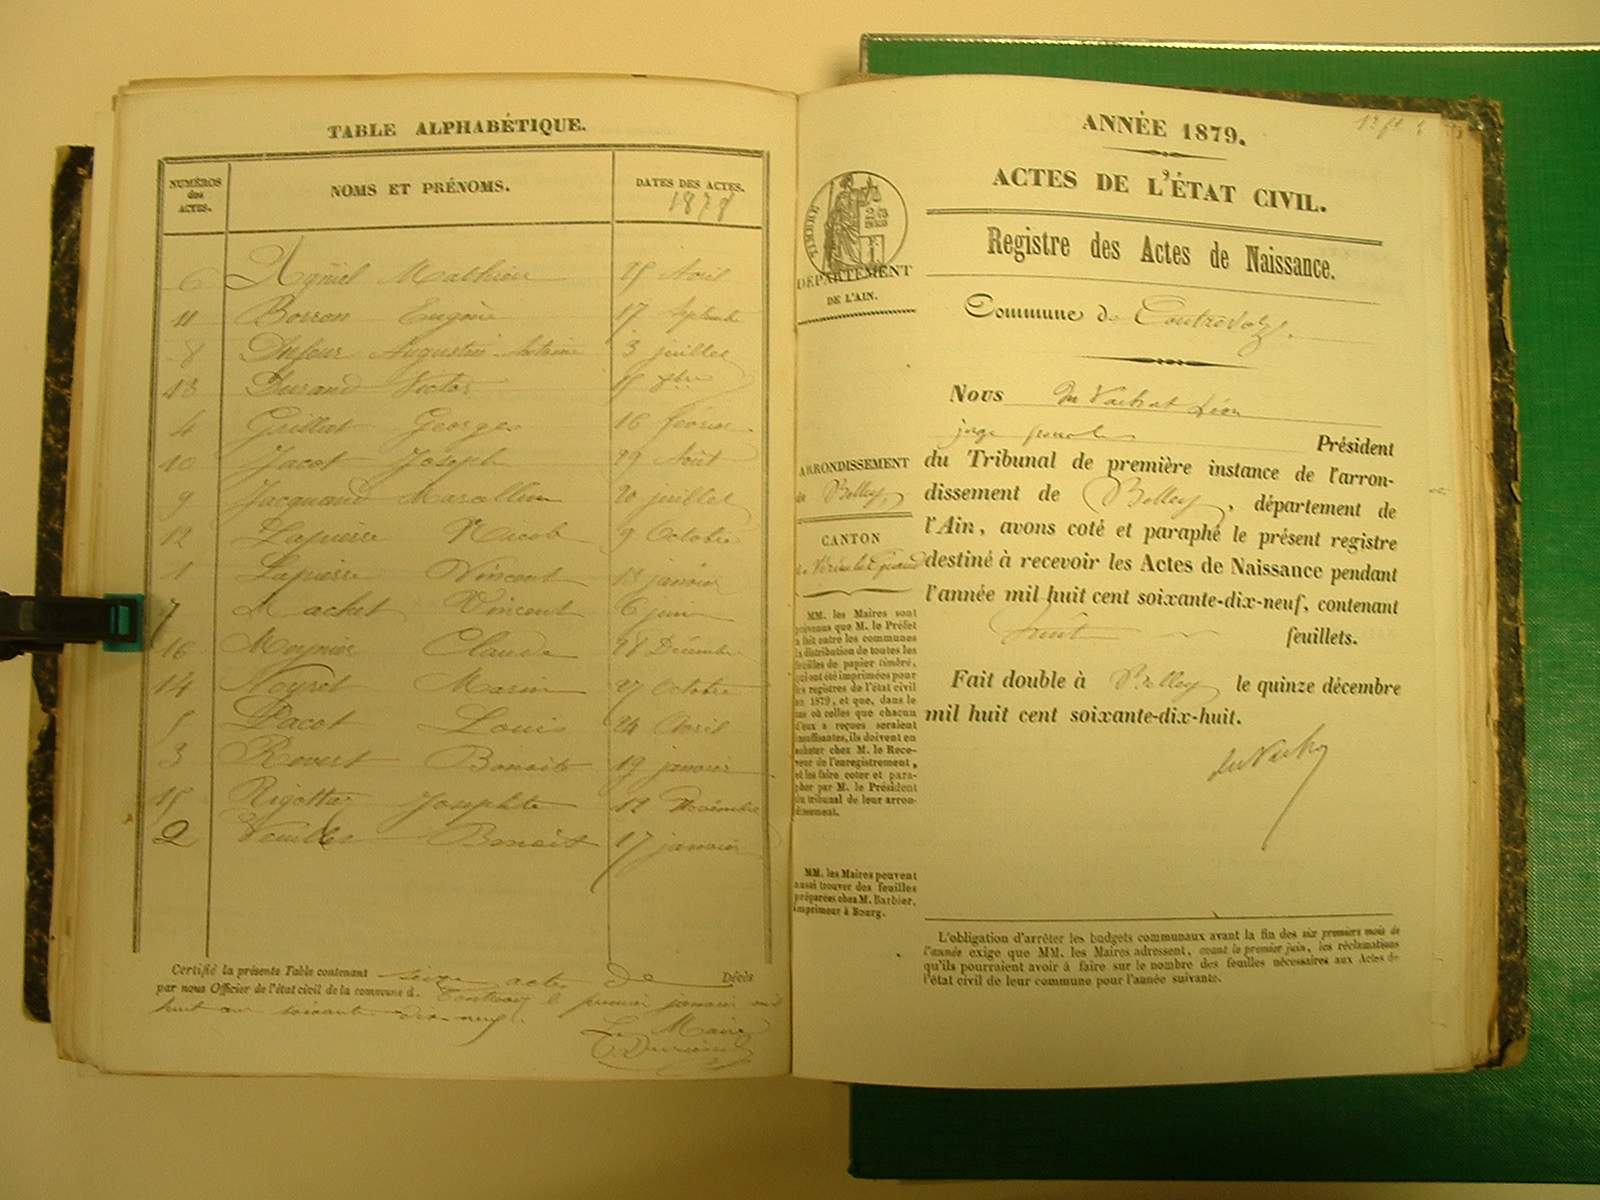 TABLE ALPHABÉTIQUE.
NUMÉROS des ACTES.
NOMS ET PRÉNOMS.
DATES DES ACTES.
1878
6 Mathieu 15 Avril
11 Borron Eugène 17 Septembre
8 Dufour Augustin Antoine 3 juillet
13 Durand Victor 15 8bre
4 Grillat Georges 16 février
10 Jacot Joseph 29 Août
9 Jacquand Marcellin 20 juillet
12 Lapierre Nicole 9 Octobre
1 Lapierre Vincent 13 janvier
7 Machet Vincent 6 juin
16 Meynier Claude 28 Décembre
14 Noyret Marin 27 Octobre
5 Pacot Louis 24 Avril
3 Revert Benoite 19 janvier
15 Rigottaz Josephte 12 Novembre
2 Benoit 17 janvier
Certifié la présente Table contenant seize actes de Décès
par nous Officier de l'état civil de la commune d. le premier janvier mil
huit cent soixante dix-neuf.
Le Maire
ANNÉE 1879.
ACTES DE L'ÉTAT CIVIL.
TIMBRE
Registre des Actes de Naissance.
DÉPARTEMENT
DE L'AIN.
Commune de Contrevoz.
Nous Du Vachat Léon
juge Président
ARRONDISSEMENT
de Belley
CANTON
de Virieu le Grand
du Tribunal de première instance de l'arron-
dissement de Belley, département de
l'Ain, avons coté et paraphé le présent registre
destiné à recevoir les Actes de Naissance pendant
l'année mil huit cent soixante-dix-neuf, contenant
huit feuillets.
Fait double à Belley le quinze décembre
mil huit cent soixante-dix-huit.
du Vachat
MM. les Maires sont
prévenus que M. le Préfet
a fait entre les communes
la distribution de toutes les
feuilles de papier timbré,
qui ont été imprimées pour
les registres de l'état civil
en 1879, et que, dans le
cas où celles que chacun
d'eux a reçues seraient
insuffisantes, ils doivent en
acheter chez M. le Rece-
veur de l'enregistrement,
et les faire coter et para-
pher par M. le Président
du tribunal de leur arron-
dissement.
MM. les Maires peuvent
aussi trouver des feuilles
préparées chez M. Barbier,
imprimeur à Bourg.
L'obligation d'arrêter les budgets communaux avant la fin des six premiers mois de
l'année exige que MM. les Maires adressent, avant le premier juin, les réclamations
qu'ils pourraient avoir à faire sur le nombre des feuilles nécessaires aux Actes de
l'état civil de leur commune pour l'année suivante.